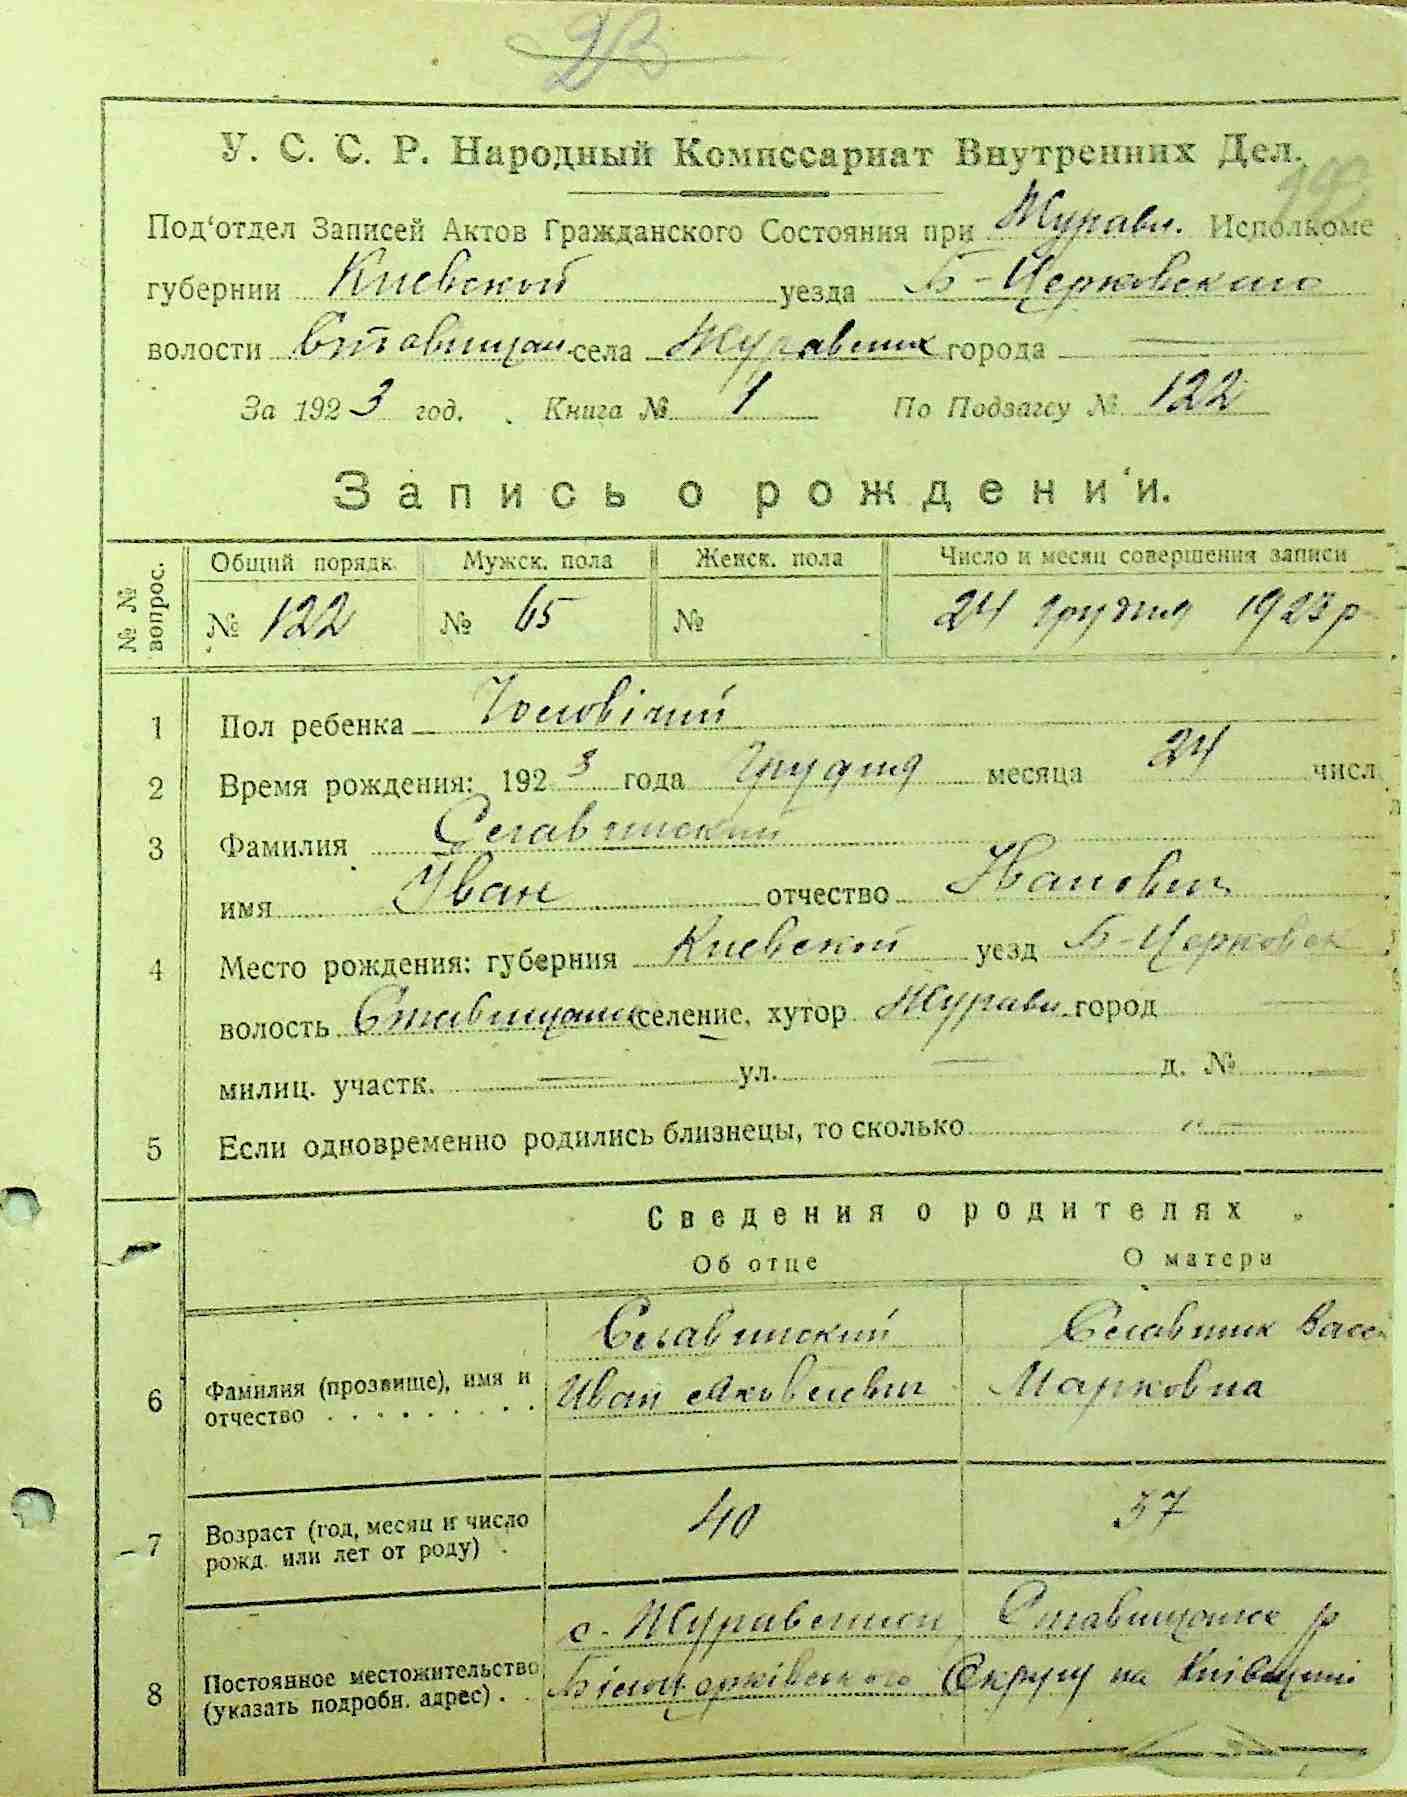 23
У. С. С. Р. Народный Комиссариат Внутренних Дел.
Под'отдел Записей Актов Гражданского Состояния при Журавл. Исполкоме
губернии Киевской уезда Б-Церковского
волости Ставищан. села Журавлиха города —
За 1923 год. Книга № 1 По Подзагсу № 122
Запись о рождении.
№ № вопрос. Общий порядк. Мужск. пола Женск. пола Число и месяц совершения записи
№ 122 № 65 № 24 грудня 1923 р
1 Пол ребенка Чоловічий
2 Время рождения: 1923 года Грудня месяца 24 числ
3 Фамилия
имя Иван отчество Иванович
4 Место рождения: губерния Киевской уезд Б-Церковск
волость селение, хутор Журавл. город —
милиц. участк. — ул. — д. № —
5 Если одновременно родились близнецы, то сколько —
Сведения о родителях
Об отце О матери
6 Фамилия (прозвище), имя и
отчество . . . . . . . . . Иван Яковлевич Марковна
7 Возраст (год, месяц и число
рожд. или лет от роду) . 40 37
с. Журавлихи Ставищанск р
8 Постоянное местожительство
(указать подробн. адрес) . . Білоцерківського Округу на Київщині